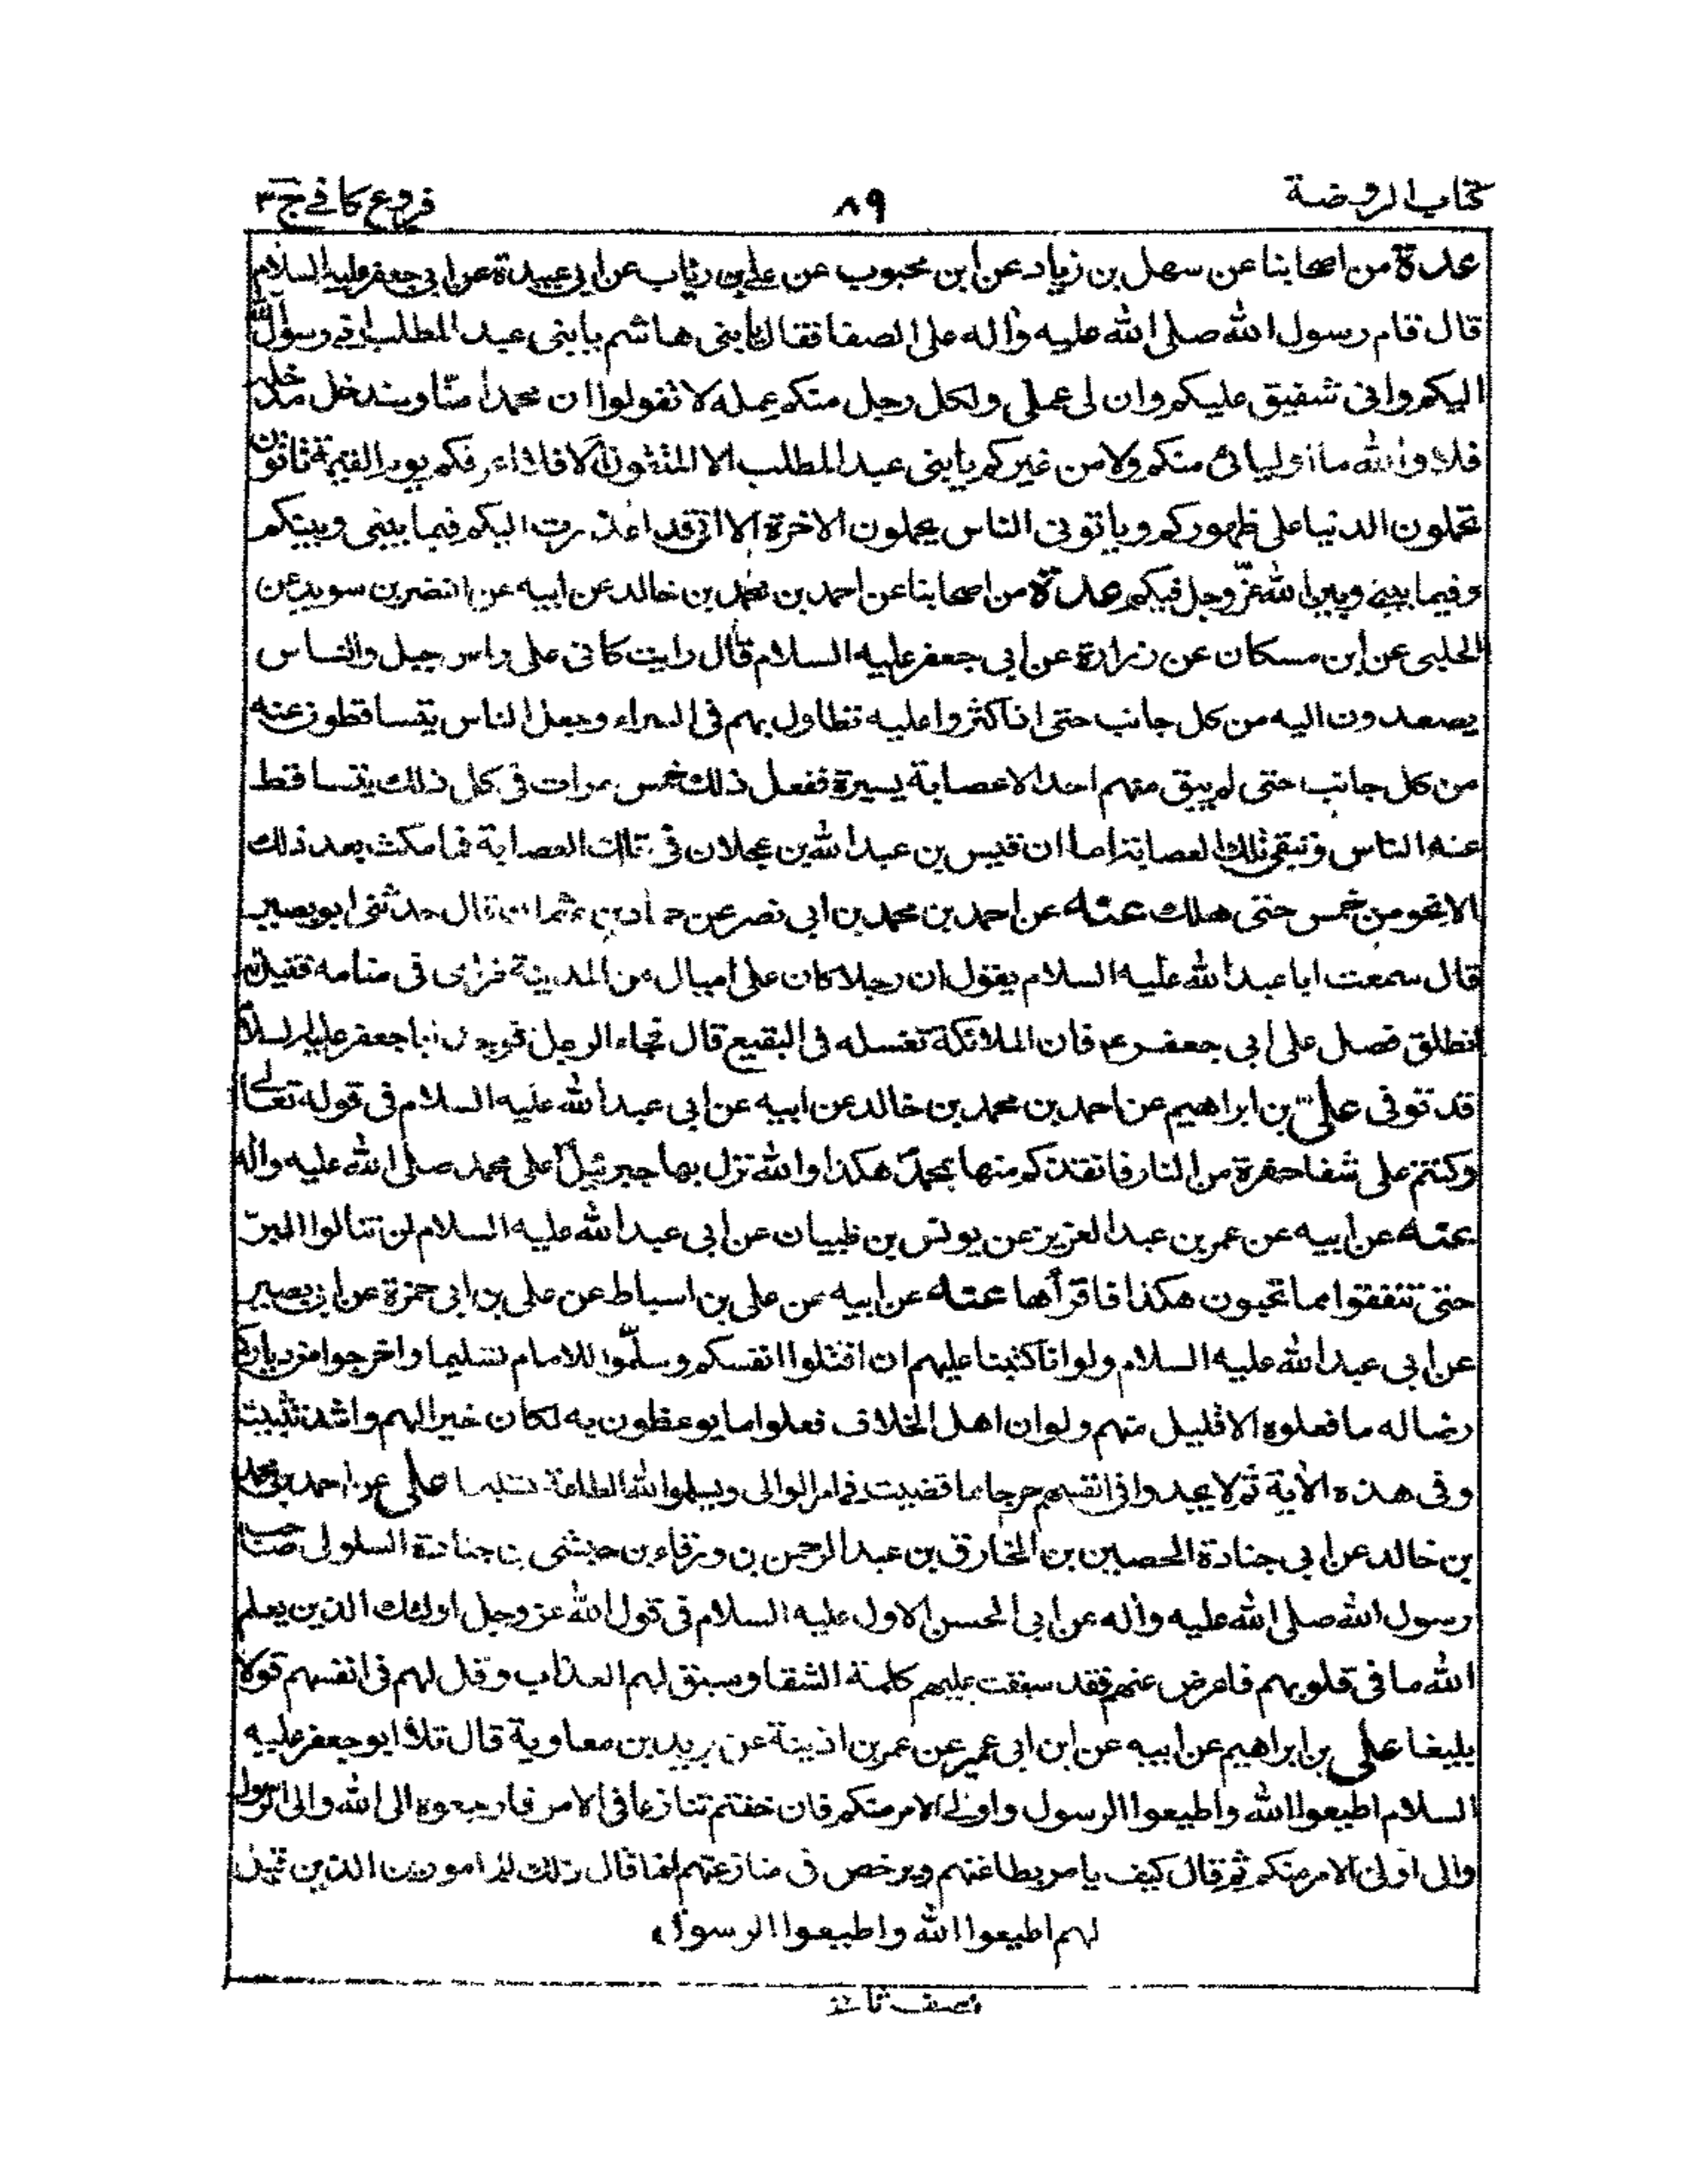 كتاب الروضة ٨٩ فروع كافي ج٣
عدة من اصحابنا عن سهل بن زياد عن ابن محبوب عن علي بن رئاب عن ابي عبيدة عن ابي جعفر عليه السلام
قال قام رسول الله صلى الله عليه واله على الصفا فقال يا بنى هاشم يا بنى عبد المطلب انى رسول الله
اليكم وانى شفيق عليكم وان لى عملى ولكل رجل منكم عمله لا تقولوا ان محمدا منا وسندخل مدخله
فلا والله ما اوليائى منكم ولا من غيركم يا بنى عبد المطلب الا المتقون الا فلا اعرفكم يوم القيمة تاتون
تحملون الدنيا على ظهوركم وياتونى الناس يحملون الاخرة الا انى قد اعذرت اليكم فيما بينى وبينكم
وفيما بينى وبين الله عز وجل فيكم عدة من اصحابنا عن احمد بن محمد بن خالد عن ابيه عن النضر بن سويد عن
الحلبى عن ابن مسكان عن زرارة عن ابى جعفر عليه السلام قال رايت كانى على راس جبل والناس
يصعدون اليه من كل جانب حتى اذا كثروا عليه تطاول بهم فى السماء وجعل الناس يتساقطون عنه
من كل جانب حتى لم يبق منهم احد الا عصابة يسيرة ففعل ذلك خمس مرات فى كل ذلك يتساقط
عنه الناس وتبقى تلك العصابة اما ان قيس بن عبد الله بن عجلان فى تلك العصابة فما مكث بعد ذلك
الا نحو من خمس حتى هلك عنه عن احمد بن محمد بن ابى نصر عن حماد بن عثمان قال حدثنى ابو بصير
قال سمعت ابا عبد الله عليه السلام يقول ان رجلا كان على اميال من المدينة فراى فى منامه فقيل له
انطلق فصل على ابى جعفر ع فان الملائكة تغسله فى البقيع قال فجاء الرجل فوجد ابا جعفر عليه السلام
قد توفى على بن ابراهيم عن احمد بن محمد بن خالد عن ابيه عن ابى عبد الله عليه السلام فى قوله تعالى
وكنتم على شفا حفرة من النار فانقذكم منها بمحمد هكذا والله نزل بها جبرئيل على محمد صلى الله عليه واله
عنه عن ابيه عن عمر بن عبد العزيز عن يونس بن ظبيان عن ابى عبد الله عليه السلام لن تنالوا البر
حتى تنفقوا مما تحبون هكذا فاقرأها عنه عن ابيه عن على بن اسباط عن على بن ابى حمزة عن ابى بصير
عن ابى عبد الله عليه السلام ولو انا كتبنا عليهم ان اقتلوا انفسكم وسلموا للامام تسليما واخرجوا من دياركم
رضا له ما فعلوه الا قليل منهم ولو ان اهل الخلاف فعلوا ما يوعظون به لكان خيرا لهم واشد تثبيتا
وفى هذه الآية ثم لا يجدوا فى انفسهم حرجا مما قضيت فى امر الوالى ويسلموا لله الطاعة تسليما على عن احمد بن محمد
بن خالد عن ابى جنادة الحصين بن المخارق بن عبد الرحمن بن ورقاء بن حبشى بن جنادة السلولى صاحب
رسول الله صلى الله عليه واله عن ابى الحسن الاول عليه السلام فى قول الله عز وجل اولئك الذين يعلم
الله ما فى قلوبهم فاعرض عنهم فقد سبقت عليهم كلمة الشقا وسبق لهم العذاب وقل لهم فى انفسهم قولا
بليغا على بن ابراهيم عن ابيه عن ابن ابى عمير عن عمر بن اذينة عن بريد بن معاوية قال تلا ابو جعفر عليه
السلام اطيعوا الله واطيعوا الرسول واولى الامر منكم فان خفتم تنازعا فى الامر فارجعوه الى الله والى الرسول
والى اولى الامر منكم ثم قال كيف يامر بطاعتهم ويرخص فى منازعتهم انما قال ذلك للمامورين الذين قيل
لهم اطيعوا الله واطيعوا الرسول